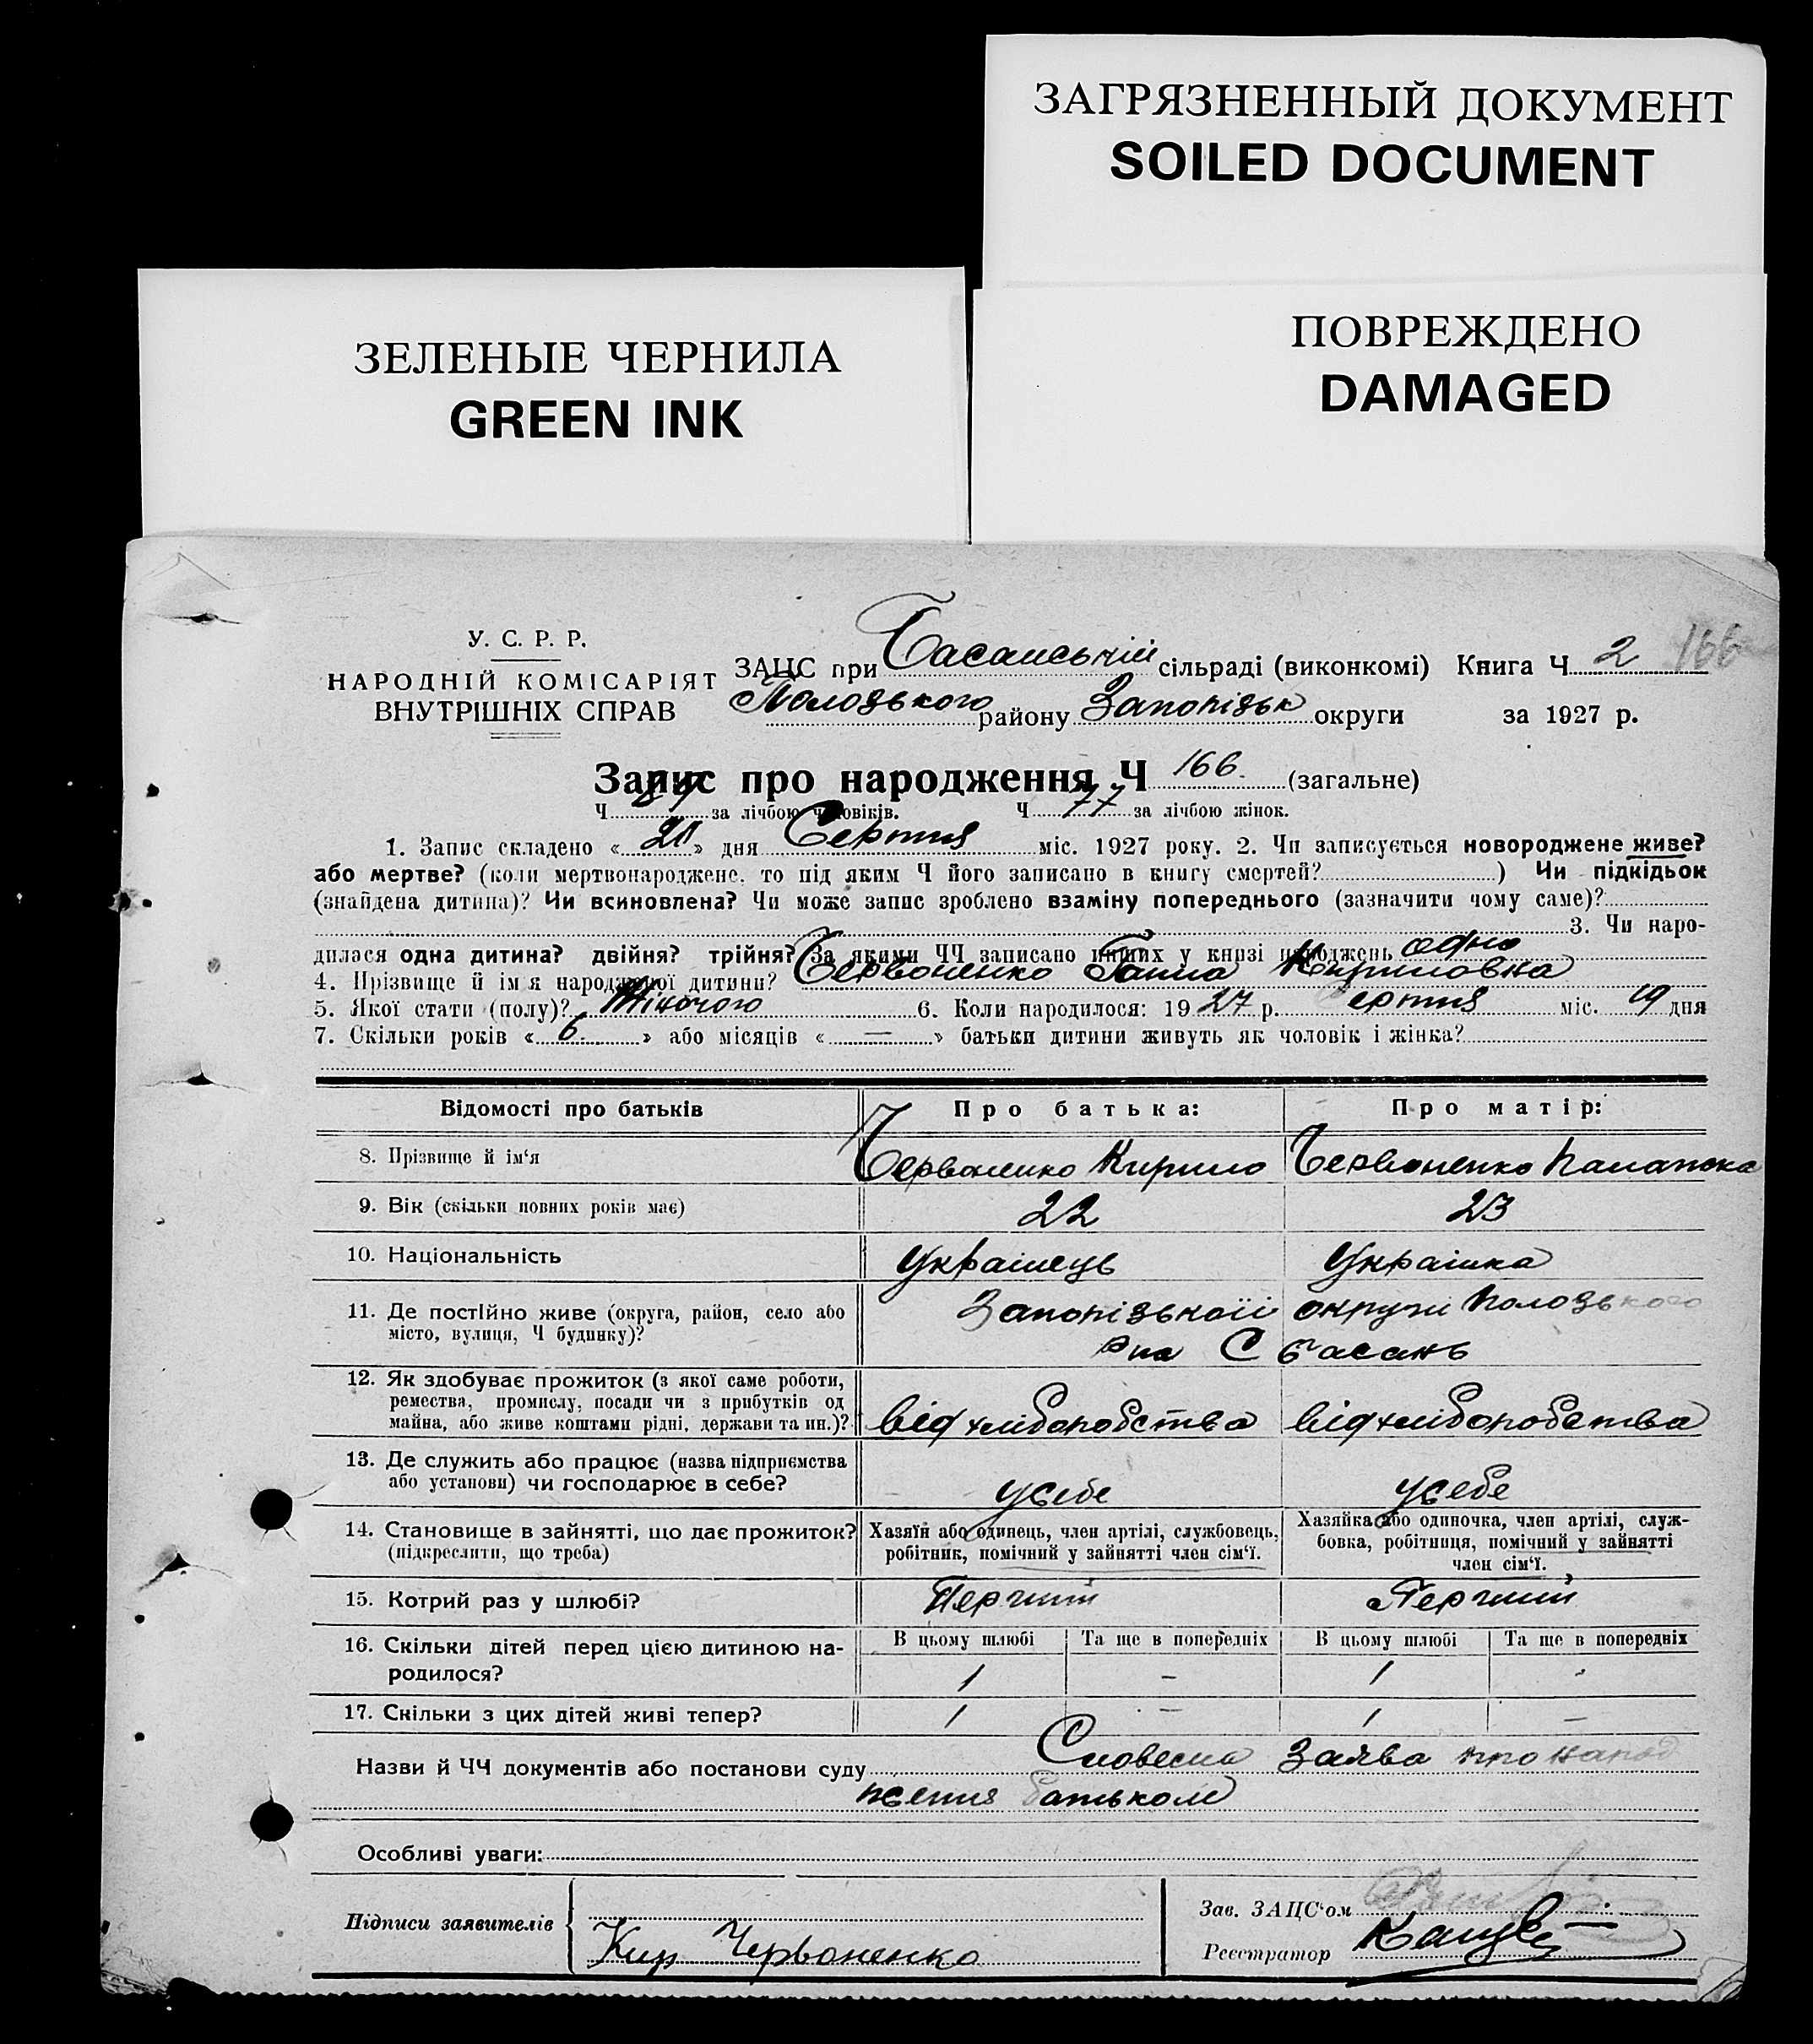 ЗАГРЯЗНЕННЫЙ ДОКУМЕНТ
SOILED DOCUMENT
ЗЕЛЕНЫЕ ЧЕРНИЛА
GREEN INK
ПОВРЕЖДЕНО
DAMAGED
У. С. Р. Р.
НАРОДНІЙ КОМІСАРІЯТ
ВНУТРІШНІХ СПРАВ
ЗАЦС при Басанській сільраді (виконкомі) Книга Ч 2 166
Полозького району Запорізьк округи за 1927 р.
Запис про народження Ч 166. (загальне)
Ч 89 за лічбою чоловіків. Ч 77 за лічбою жінок.
1. Запис складено « » дня Серпня міс. 1927 року. 2. Чи записується новороджене живе?
або мертве? (коли мертвонароджене, то під яким Ч його записано в книгу смертей? ) Чи підкідьок
(знайдена дитина)? Чи всиновлена? Чи може запис зроблено взаміну попереднього (зазначити чому саме)?
3. Чи наро-
дилася одна дитина? двійня? трійня? За якими ЧЧ записано инших у книзі народжень одно
4. Прізвище й ім'я народженої дитини? Червоненко Ганна Кириловна
5. Якої стати (полу)? Жіночого 6. Коли народилося: 1927 р. Серпня міс. 19 дня
7. Скільки років « 6 » або місяців « — » батьки дитини живуть як чоловік і жінка?
Відомості про батьків Про батька: Про матір:
8. Прізвище й ім'я Червоненко Кирило Червоненко Палажка
9. Вік (скільки повних років має) 22 23
10. Національність Українець Українка
11. Де постійно живе (округа, район, село або Запорізької округи Полозького
місто, вулиця, Ч будинку)? р-на С Басань
12. Як здобуває прожиток (з якої саме роботи,
ремества, промислу, посади чи з прибутків од
майна, або живе коштами рідні, держави та ин.)? від хліборобства від хліборобства
13. Де служить або працює (назва підприємства
або установи) чи господарює в себе? у себе у себе
14. Становище в зайнятті, що дає прожиток? Хазяїн або одинець, член артілі, службовець, Хазяйка або одиночка, член артілі, служ-
(підкреслити, що треба) робітник, помічний у зайнятті член сім'ї. бовка, робітниця, помічний у зайнятті
член сім'ї.
15. Котрий раз у шлюбі? Перший Перший
16. Скільки дітей перед цією дитиною на- В цьому шлюбі Та ще в попередніх В цьому шлюбі Та ще в попередніх
родилося? 1 – 1 -
17. Скільки з цих дітей живі тепер? 1 – 1 –
Назви й ЧЧ документів або постанови суду Словесна заява про народ
ження батьком
Особливі уваги:
Підписи заявителів Зав. ЗАЦС'ом
Кир Червоненко Реєстратор